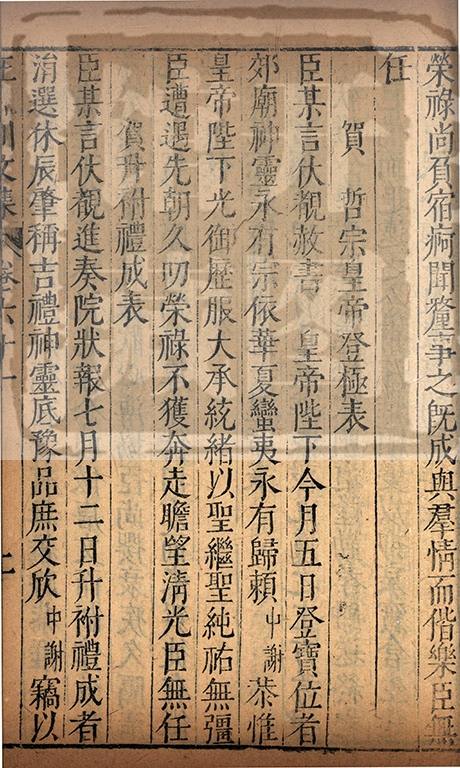 榮祿尚負宿痾聞釐事之旣成與羣情而偕樂臣無
任
賀哲宗皇帝登極表
臣某言伏覩赦書皇帝陛下今月五日登寶位者
郊廟神靈永有宗依華夏蠻夷永有歸賴中謝恭惟
皇帝陛下光御歷服大承統緒以聖繼聖純祐無彊
臣遭遇先朝久叨榮祿不獲奔走瞻望淸光臣無任
賀升祔禮成表
臣某言伏觀進奏院狀報七月十二日升祔禮成者
涓選休辰肇稱吉禮神靈底豫品庶交欣中謝竊以
文集卷六十一